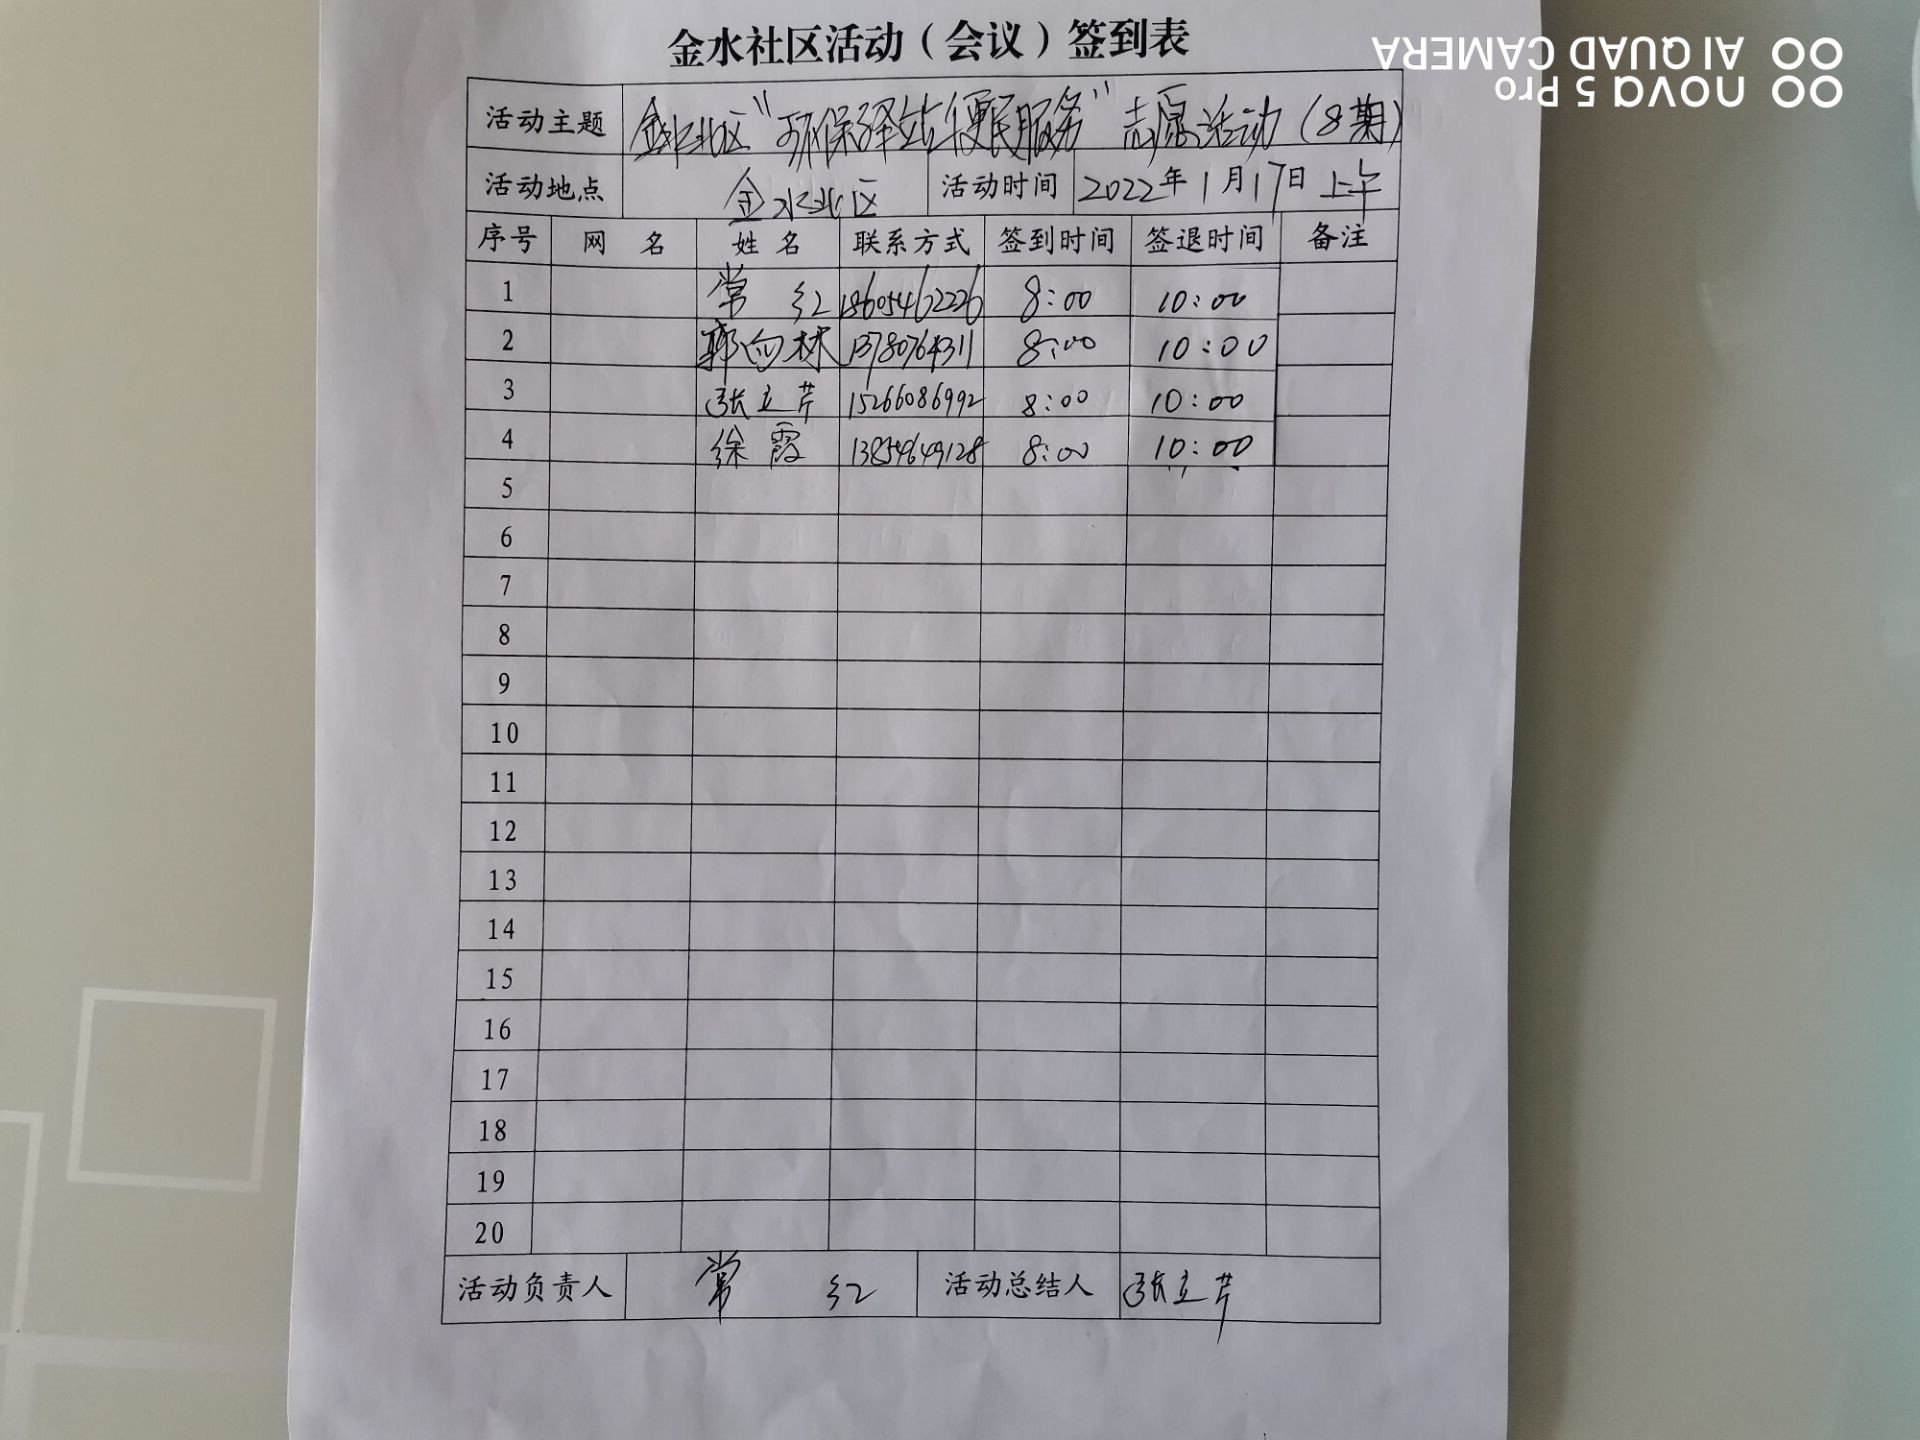 金水社区活动（会议）签到表
活动主题 金水北区“环保驿站便民服务”志愿活动（8期）
活动地点 金水北区 活动时间 2022年1月17日上午
序号 网名 姓名 联系方式 签到时间 签退时间 备注
1 常红 18605462226 8:00 10:00
2 郭向林 13780764311 8:00 10:00
3 张立芹 15266086992 8:00 10:00
4 徐霞 13854649128 8:00 10:00
5
6
7
8
9
10
11
12
13
14
15
16
17
18
19
20
活动负责人 常红 活动总结人 张立芹
nova 5 Pro
AI QUAD CAMERA